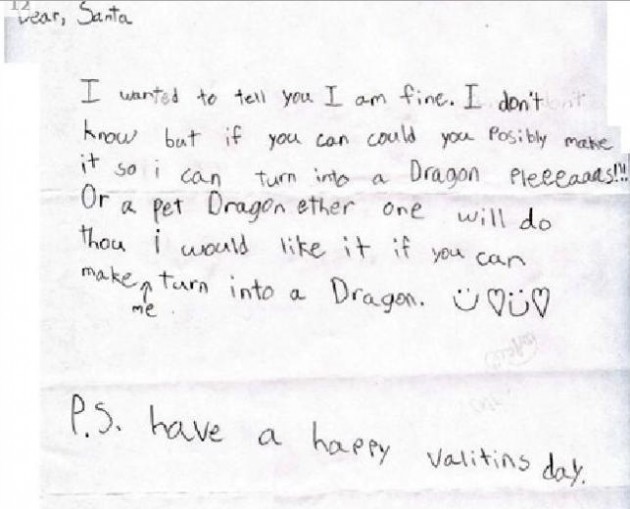 12
Dear, Santa
I wanted to tell you I am fine. I don't
know but if you can could you Posibly make
it so i can turn into a Dragon Pleeeaaas!!!
Or a pet Dragon ether one will do
thou i would like it if you can
make turn into a Dragon. ü♡ü♡
me
P.S. have a happy valitins day.